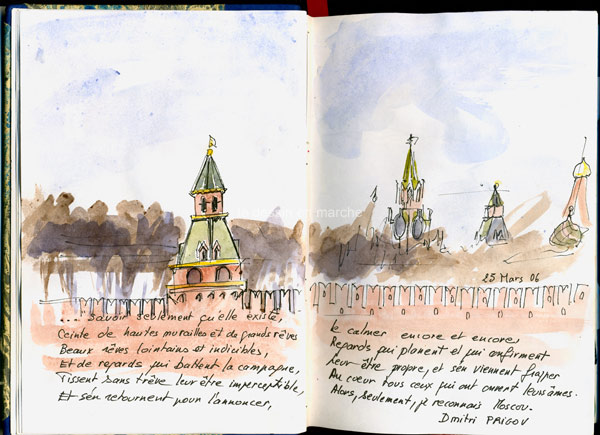 en marche
...." savoir seulement qu'elle existe,
Ceinte de hautes murailles et de grands rêves
Beaux rêves lointains et indicibles,
Et de regards qui battent la campagne,
Tissent sans trêve leur être imperceptible,
Et s'en retournent pour l'annoncer,
25 Mars 06
le calmer encore et encore,
Regards qui planent et qui confirment
leur être propre, et s'en viennent frapper
Au coeur tous ceux qui ont ouvert leurs âmes.
Alors, seulement, je reconnais Moscou.
Dmitri PRIGOV